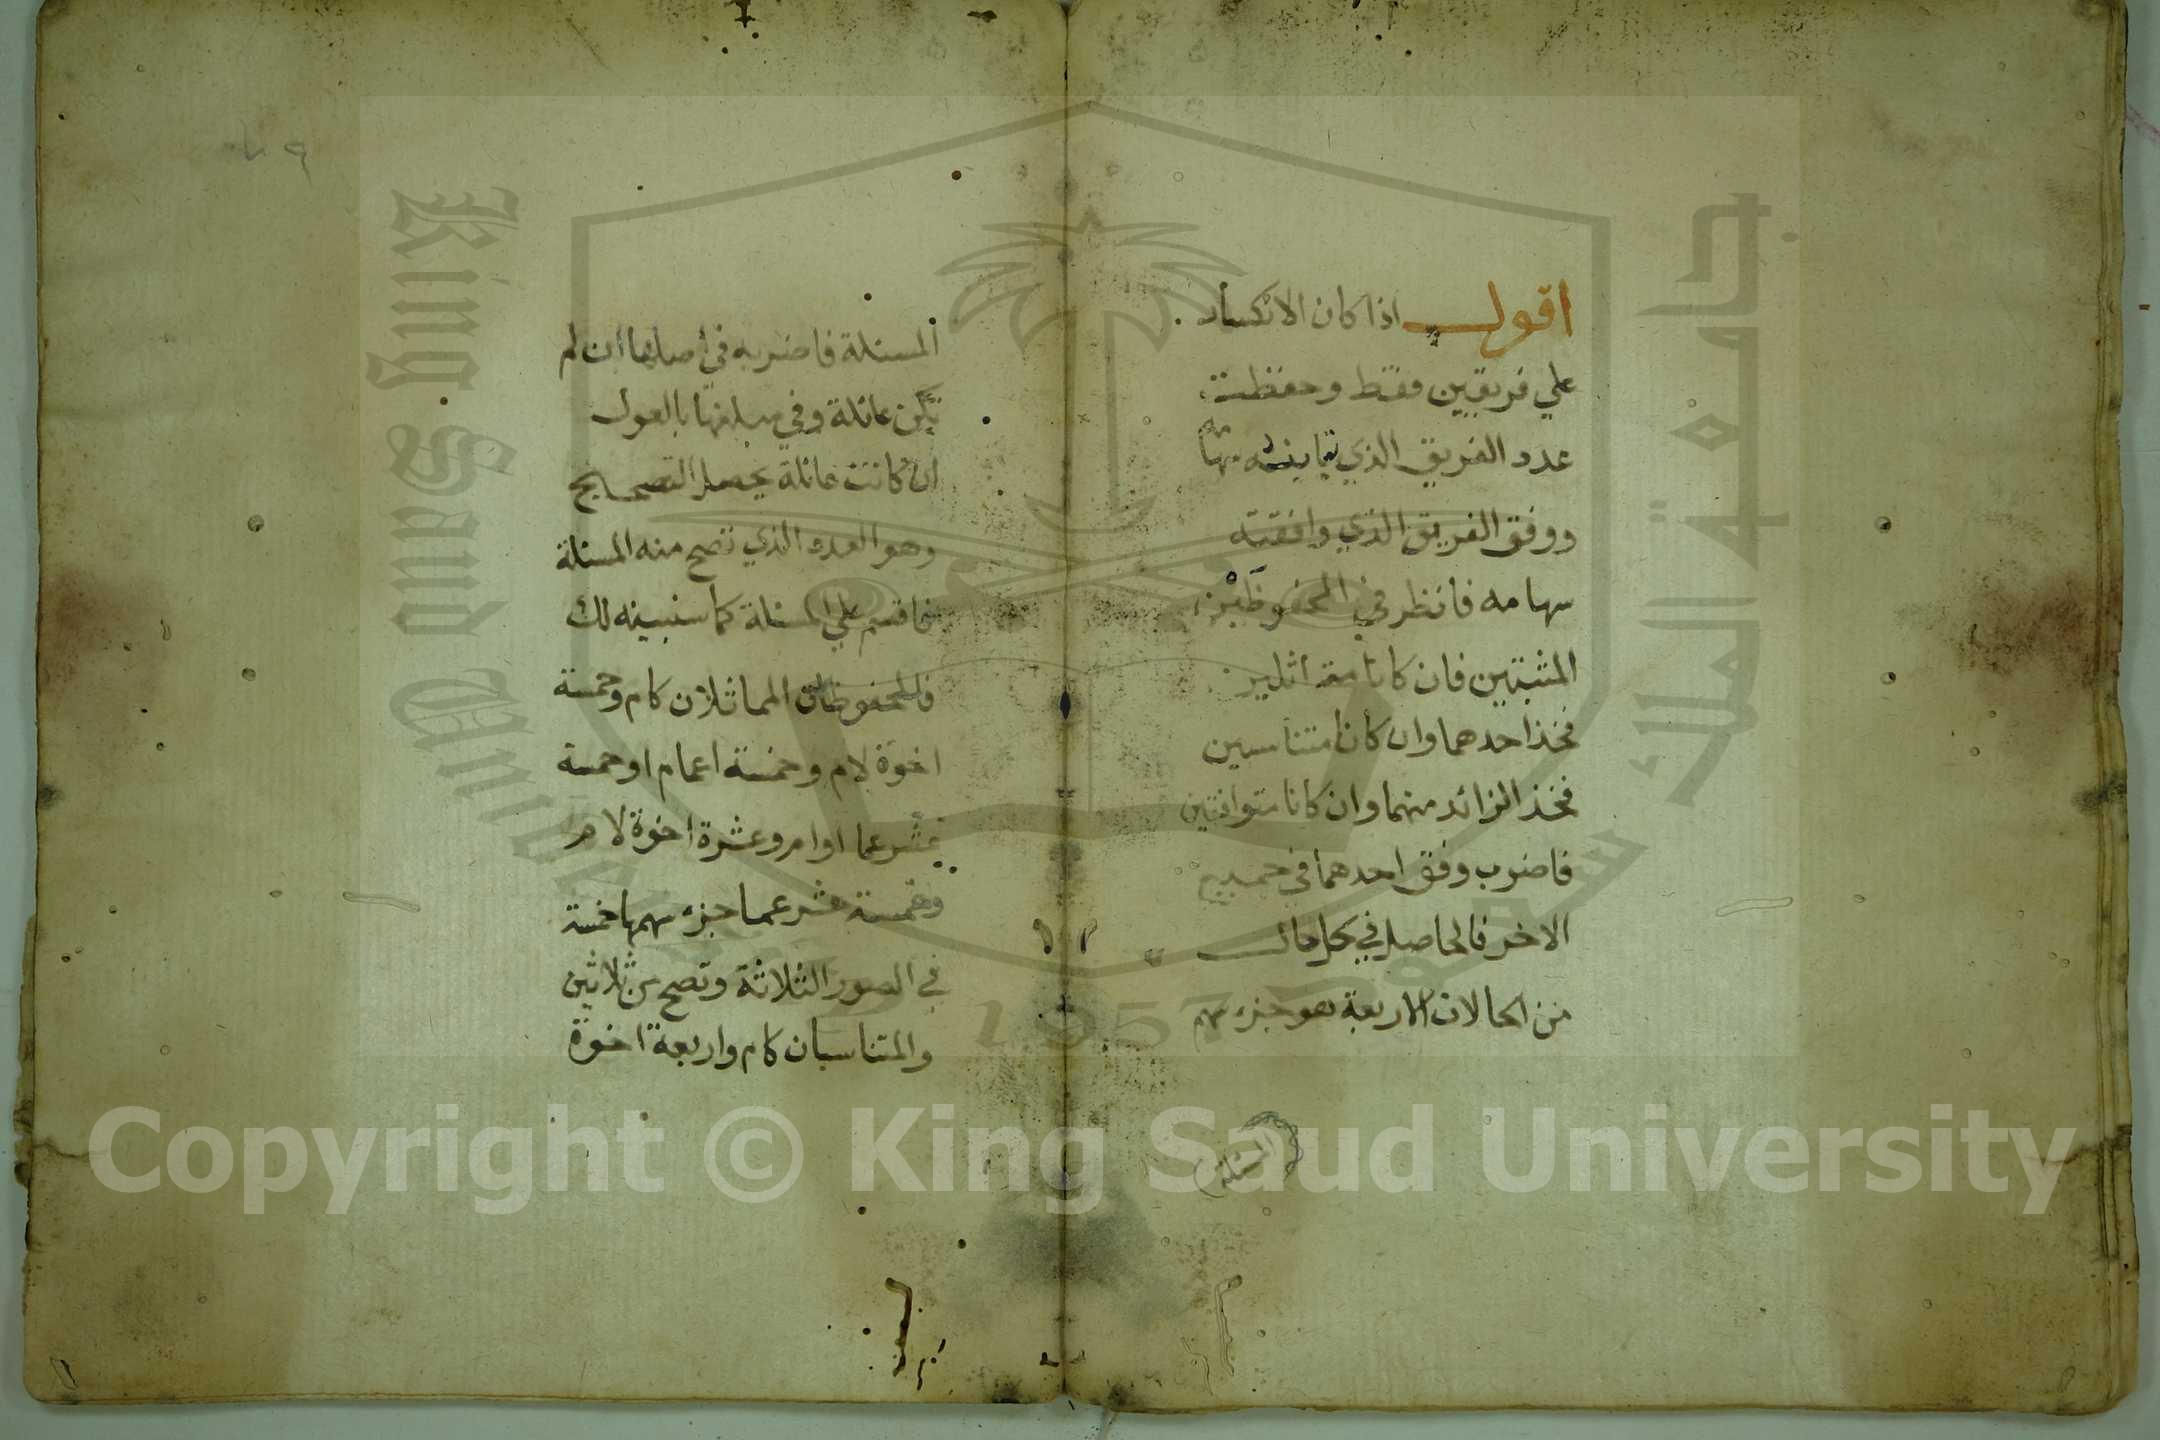 اقول اذا كان الانكسار
علي فريقين فقط وحفظت
عدد الفريق الذي تباينه سهامه
ووفق الفريق الذي وافقته
سهامه فانظر في المحفوظين
المثبتين فان كانا متماثلين
فخذ احدهما وان كانا متناسبين
فخذ الزائد منهما وان كانا متوافقين
فاضرب وفق احدهما في جميع
الاخر فالحاصل في كل حال
من الحالات الاربعة هو جزء سهم
المسئلة
المسئلة فاضربه في اصلها ان لم
تكن عائلة وفي مبلغها بالعول
ان كانت عائلة يحصل التصحيح
وهو العدد الذي تصح منه المسئلة
فاقسم علي المسئلة كما سنبينه لك
فالمحفوظان المماثلان كام وخمسة
اخوة لام وخمسة اعمام او خمسة
عشر عما او ام وعشرة اخوة لام
وخمسة عشر عما جزء سهمها خمسة
في الصور الثلاثة وتصح من ثلاثين
والمتناسبان كام واربعة اخوة
King Saud University
جامعة الملك سعود
1957
Copyright © King Saud University